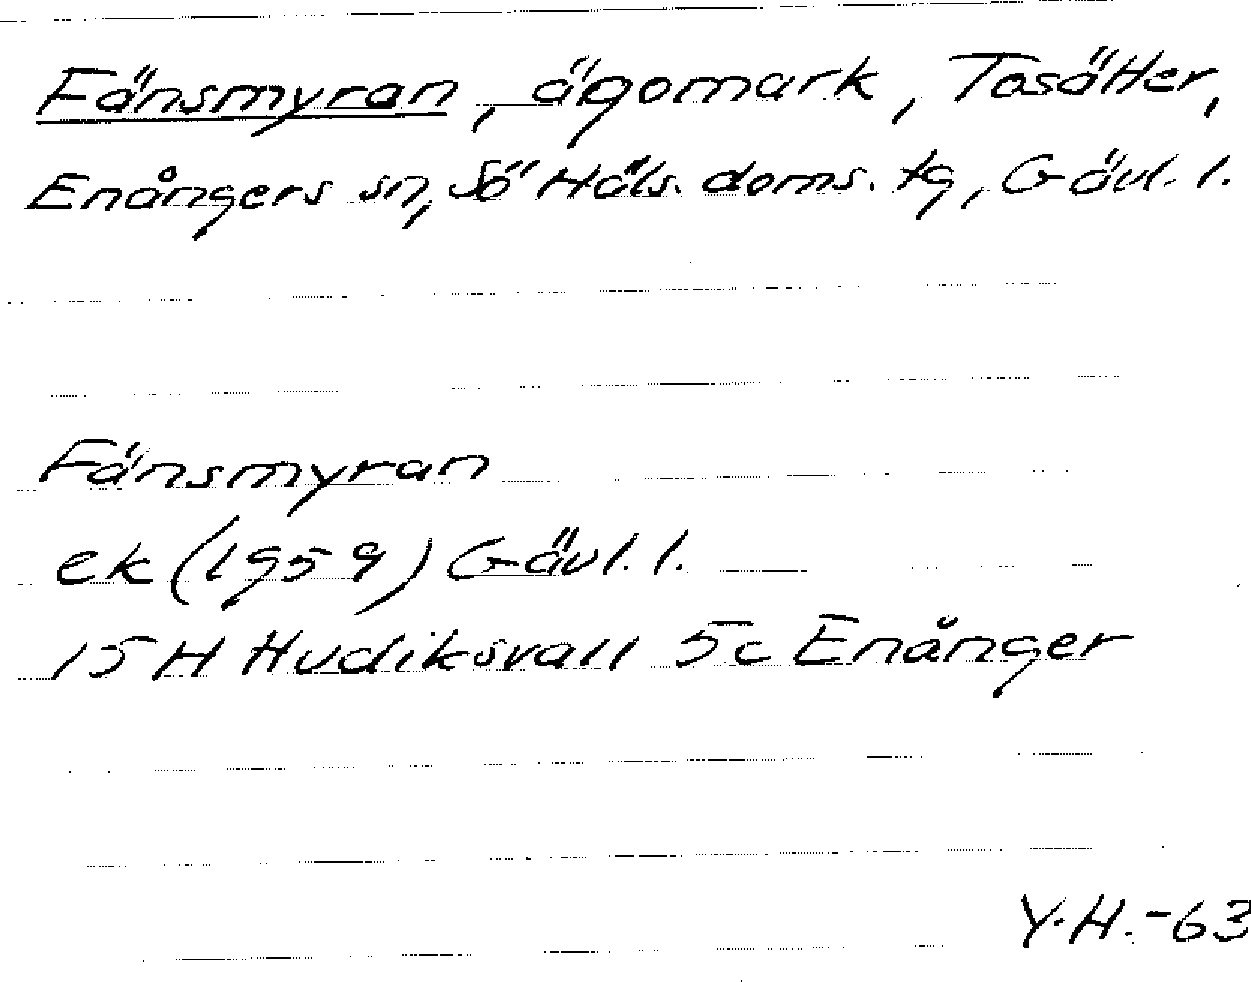 Fänsmyran, ägomark, Tosätter,
Enångers sn, Sö Häls. doms. tg, Gävl. l.
Fänsmyran
ek (1959) Gävl. l.
15 H Hudiksvall 5c Enånger
Y.H.-63